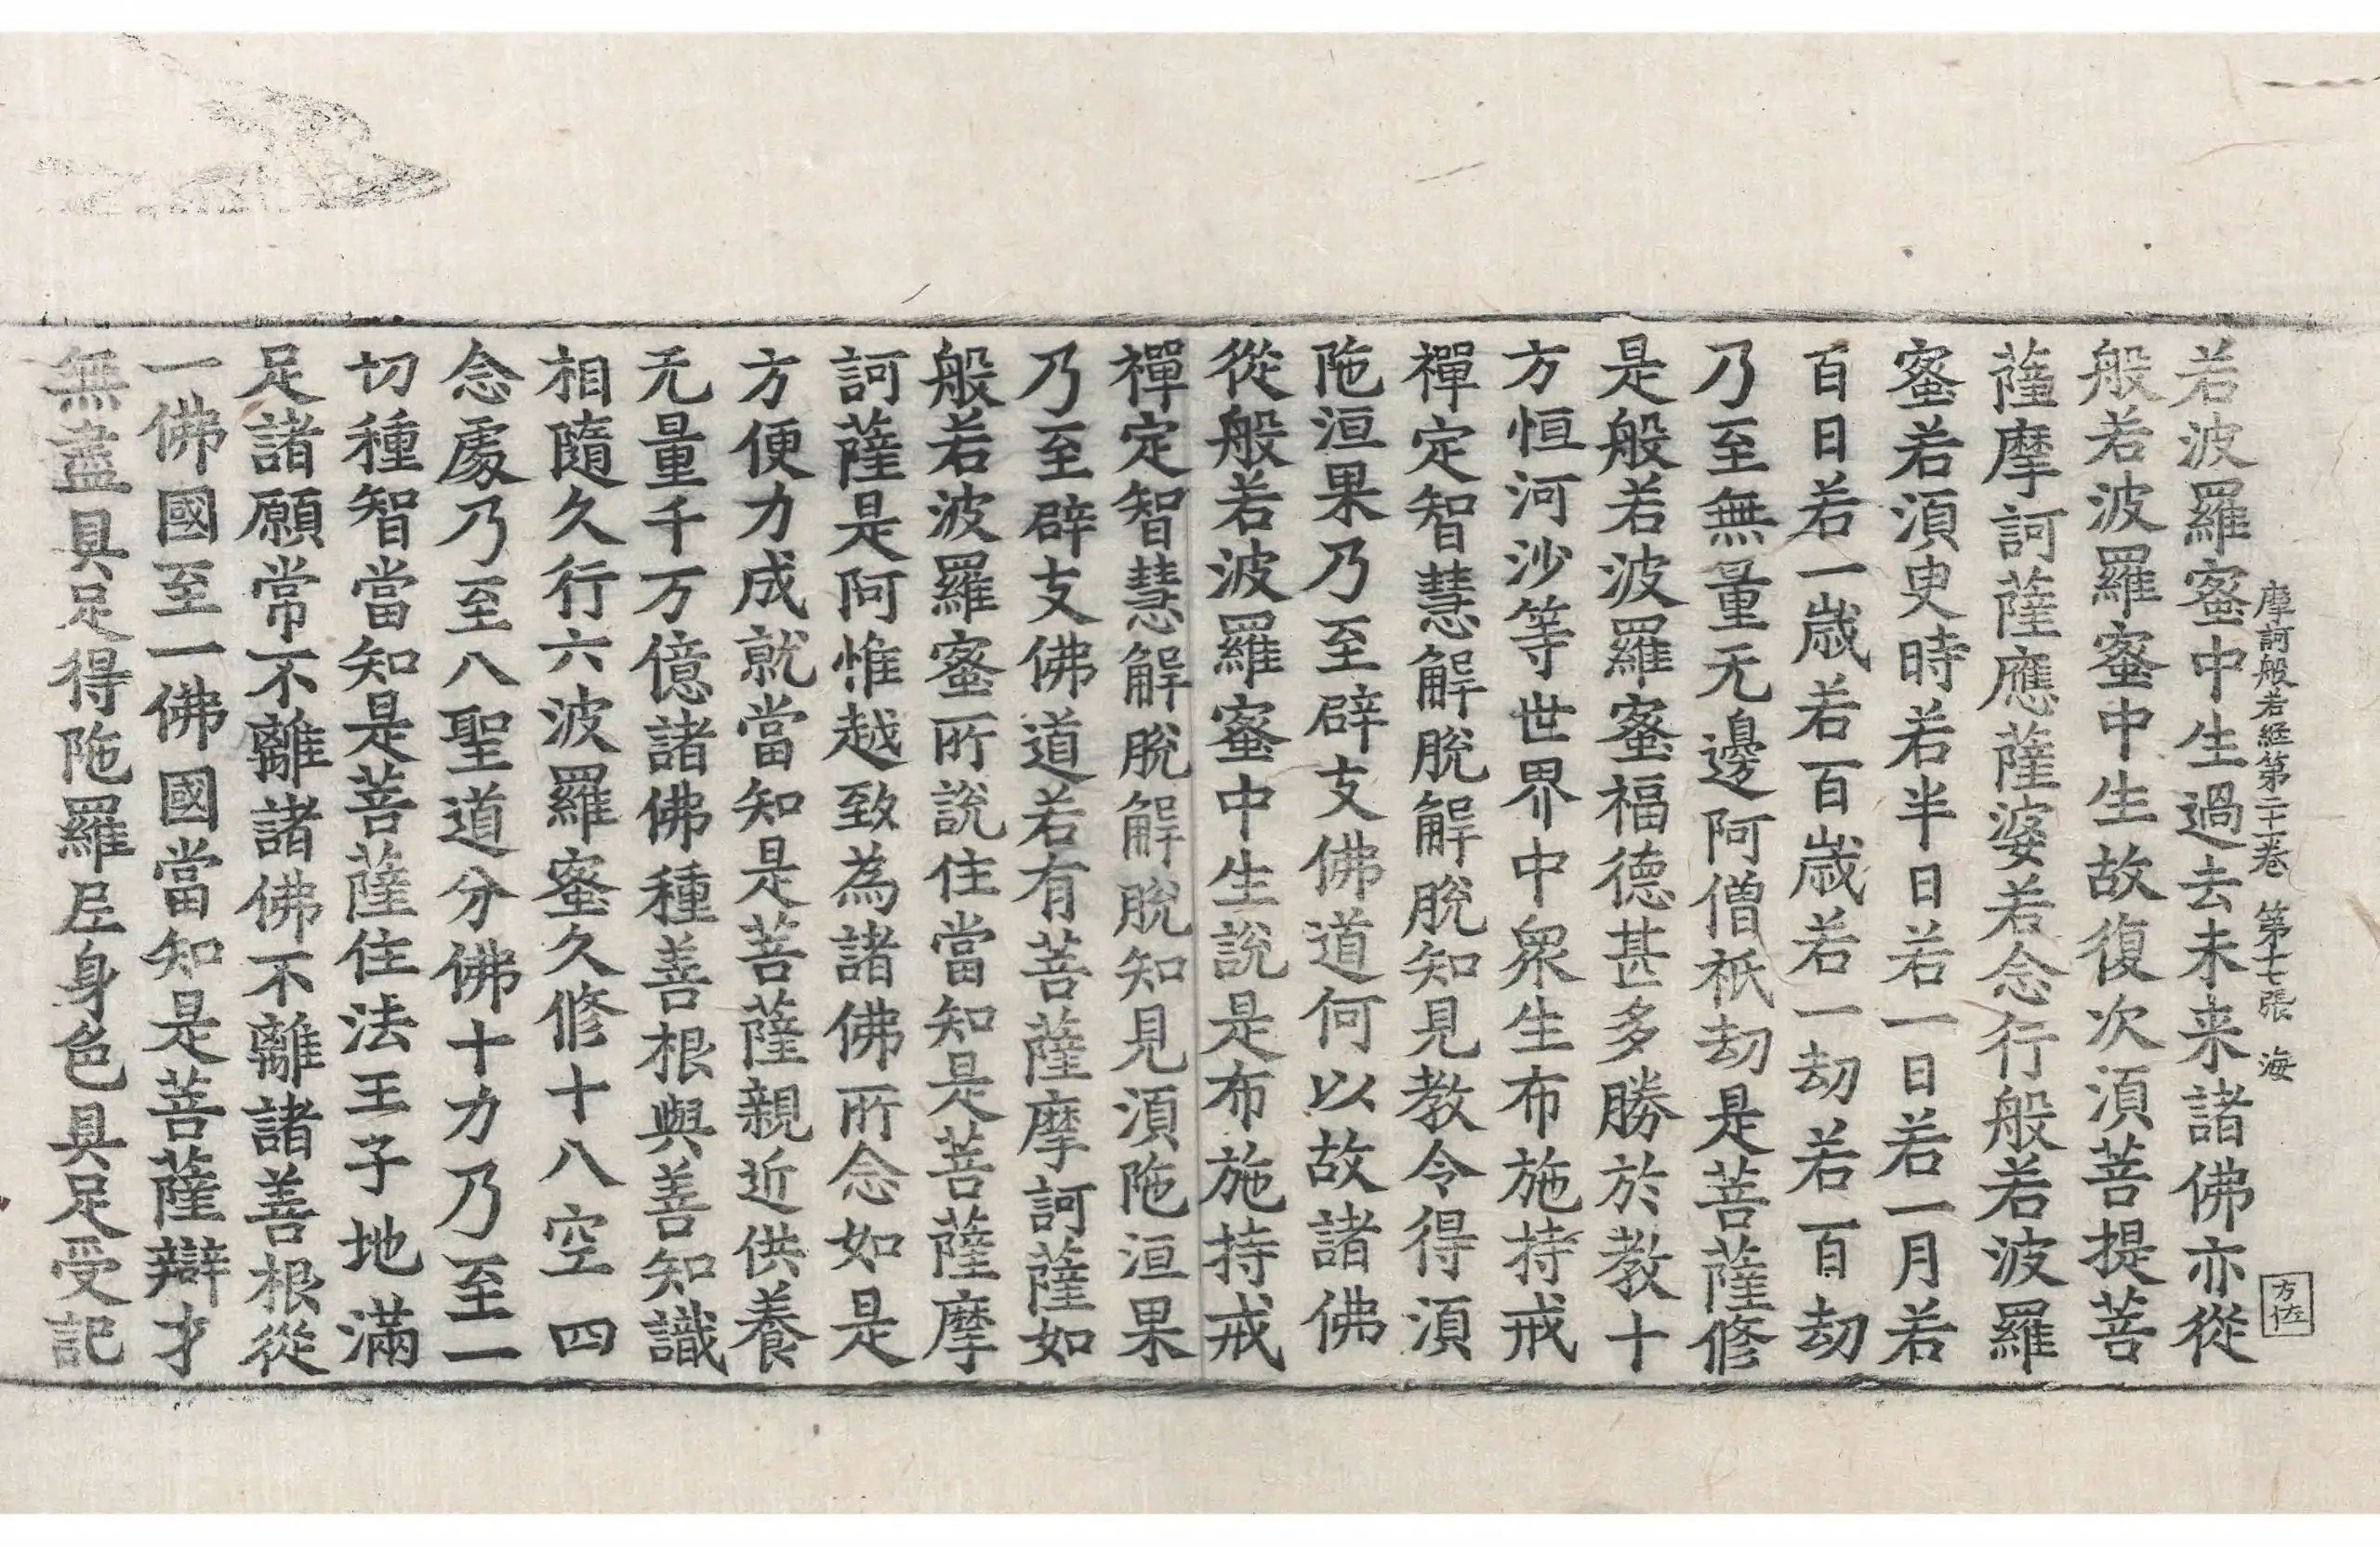 摩訶般若經第二十一卷 第十七張 海
方佐
若波羅蜜中生過去未来諸佛亦從
般若波羅蜜中生故復次須菩提菩
薩摩訶薩應薩婆若念行般若波羅
蜜若須臾時若半日若一日若一月若
百日若一歲若百歲若一劫若百劫
乃至無量无邊阿僧祇劫是菩薩修
是般若波羅蜜福德甚多勝於教十
方恒河沙等世界中衆生布施持戒
禪定智慧解脫解脫知見教令得須
陁洹果乃至辟支佛道何以故諸佛
從般若波羅蜜中生說是布施持戒
禪定智慧解脫解脫知見須陁洹果
乃至辟支佛道若有菩薩摩訶薩如
般若波羅蜜所說住當知是菩薩摩
訶薩是阿惟越致為諸佛所念如是
方便力成就當知是菩薩親近供養
无量千万億諸佛種善根與善知識
相隨久行六波羅蜜久修十八空四
念處乃至八聖道分佛十力乃至一
切種智當知是菩薩住法王子地滿
足諸願常不離諸佛不離諸善根從
一佛國至一佛國當知是菩薩辯才
無盡具足得陁羅尼身色具足受記